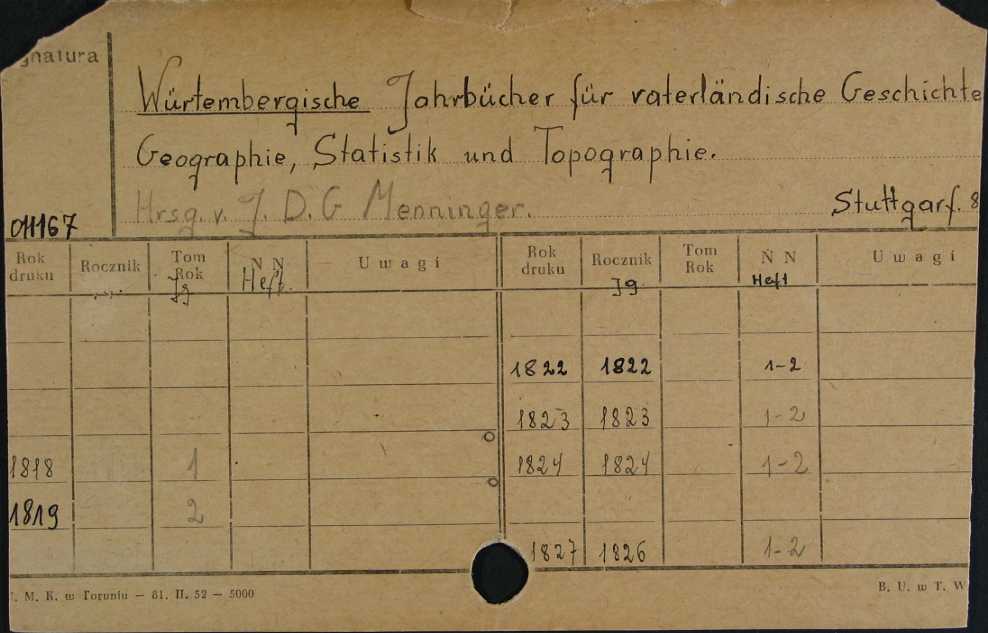 gnatura
Würtembergische Jahrbücher für vaterländische Geschichte
Geographie, Statistik und Topographie.
Hrsg. v. J. D. G Memninger.
01167 Stuttgart. 8
Rok druku Rocznik Tom Rok N N Uwagi Rok druku Rocznik Tom Rok N N Uwagi
Jg Heft. Jg Heft
1822 1822 1-2
1823 1823 1-2
1818 1 1824 1824 1-2
1819 2
1827 1826 1-2
. M. K. w Toruniu — 81. II. 52 — 5000 B. U. w T. W